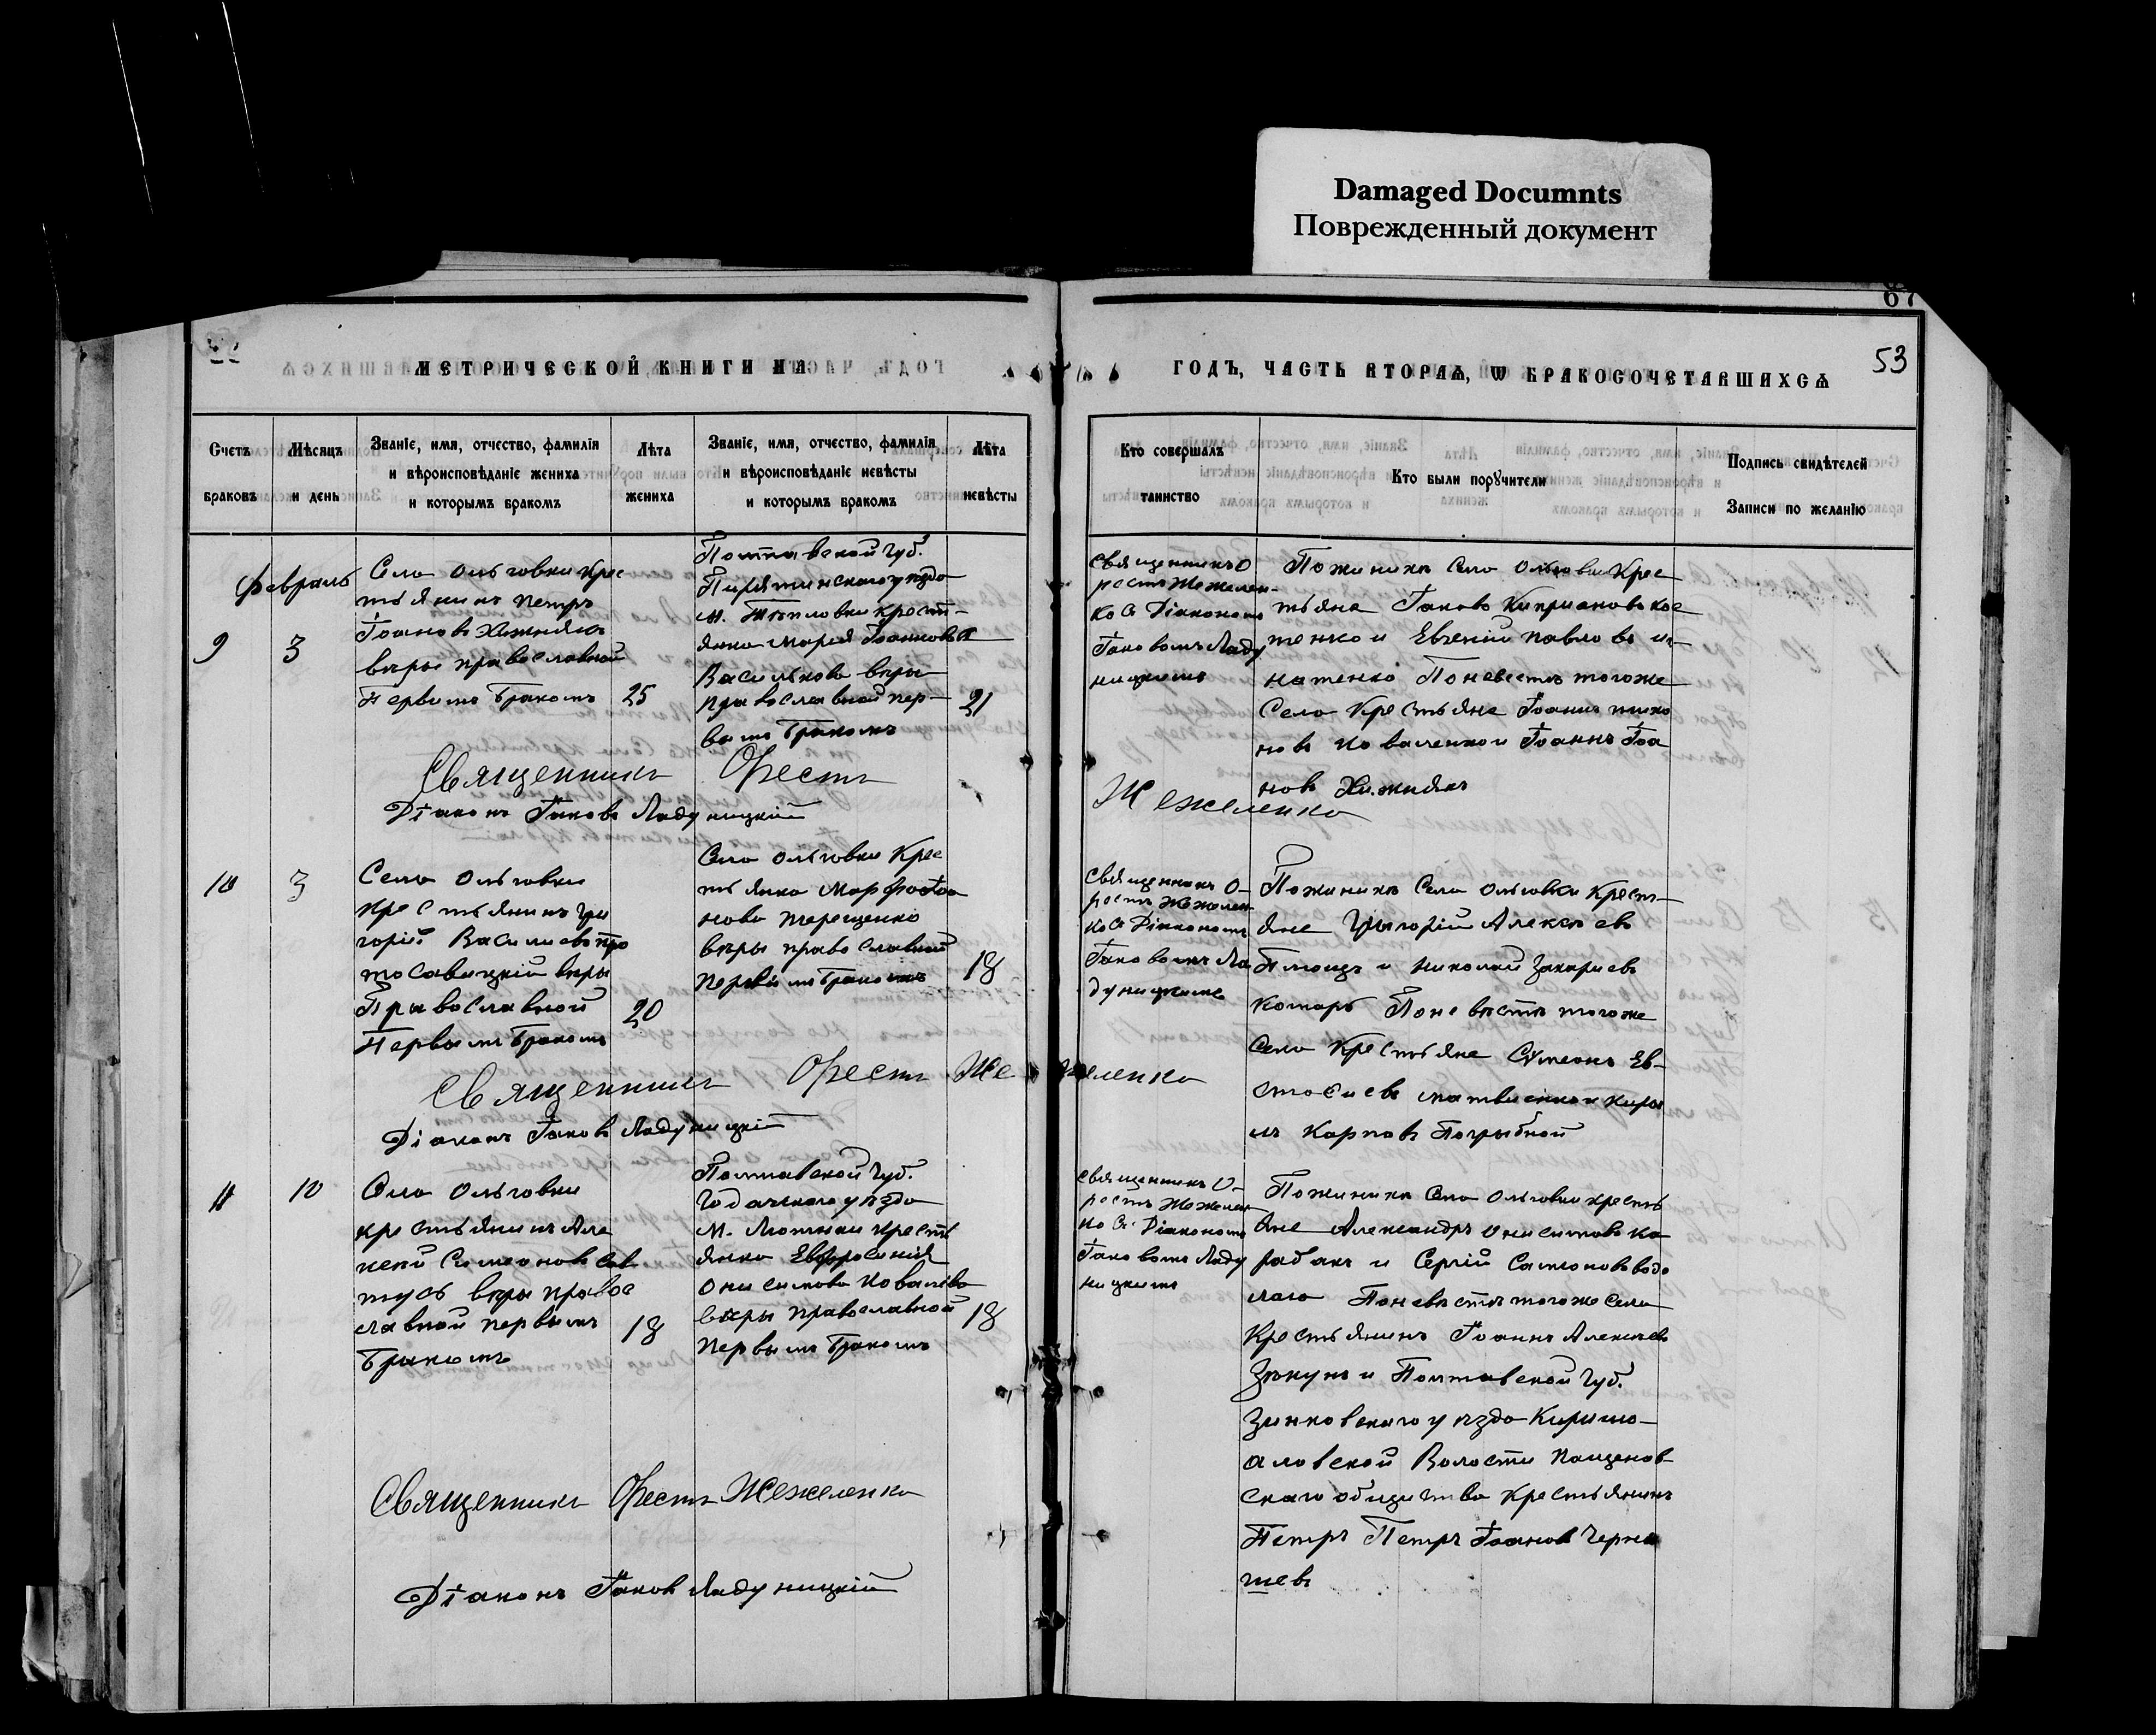 Damaged Documnts
Поврежденный документ
67
53
МЕТРИЧЕСКОЙ КНИГИ НА
ГОДЪ, ЧАСТЬ ВТОРАѦ, Ѡ БРАКОСОЧЕТАВШИХСѦ
Счетъ браковъ
Мѣсяцъ и день
Званіе, имя, отчество, фамилія
и вѣроисповѣданіе жениха
и которымъ бракомъ
Лѣта жениха
Званіе, имя, отчество, фамилія
и вѣроисповѣданіе невѣсты
и которымъ бракомъ
Лѣта невѣсты
Кто совершалъ таинство
Кто были порꙋчители
Подпись свидѣтелей
Записи по желанію
февраль
9
3
Села Ольговки крес
тьянинъ Петръ
Іоановъ Хижнякъ
вѣры православной
Первымъ бракомъ
25
Полтавской губ.
Пирятинскаго уѣзда
М. Тѣпловки крестъ-
янка Марія Іоаннова
Василькова вѣры
православной пер-
вымъ бракомъ
21
Священникъ О
рестъ Жежелен-
ко съ Діакономъ
Іаковомъ Ладу
ницкимъ
Пожинихѣ Села Ольговки Крес
тьяне Іаковъ Киприановъ Кос
тенко и Евгеній Павловъ Иг-
натенко Поневестѣ тогоже
Села Крестьяне Іоанъ Тихо
новъ Коваленко и Іоаннъ Іоа
новъ Хижнякъ
Священникъ Орестъ Жежеленко
Діаконъ Іаковъ Ладуницкій
10
3
Села Ольговки
крестьянинъ Гри
горій Василиевъ Про
тосавицкій вѣры
Православной
Первымъ бракомъ
20
Села Ольговки Крес
тьянка Марфа Іоа
нова Терещенко
вѣры православной
первымъ бракомъ
18
Священникъ О-
рестъ Жежелен-
ко съ Діакономъ
Іаковомъ Ла
дуницкимъ
Пожинихѣ Села Ольговки Кресть-
яне Григорій Алексѣевъ
и Николай Захариевъ
Комаръ Поневѣстѣ тогоже
Села Крестьяне Сѵмеонъ Ев-
стафиевъ Матвиенко и Кири
лъ Карповъ Погрыбной
Священникъ Орестъ Жежеленко
Діаконъ Іаковъ Ладуницкій
11
10
Села Ольговки
крестьянинъ Але
ксѣй Симеоновъ Сав
тусь вѣры право
славной первымъ
бракомъ
18
Полтавской губ.
Годячскаго уѣзда
М. Лютеньки кресть
янка Евфросинія
Онисимова Ковалева
вѣры православной
первымъ бракомъ
18
Священникъ О-
рестъ Жежелен
ко съ Діакономъ
Іаковомъ Ладу
ницкимъ
Пожинихѣ Села Ольговки кресть
яне Александръ Онисимовъ Ка
рабакъ и Сергій Самсоновъ Водо
лага Поневѣстѣ тогоже Села
Крестьянинъ Іоаннъ Алексѣевъ
Зѣкунъ и Полтавской губ.
Зинковскаго уѣзда
Волости Пащенов-
скаго общества Крестьянинъ
Петръ Петръ Іоановъ Черны
шевъ
Священникъ Орестъ Жежеленко
Діаконъ Іаковъ Ладуницкій